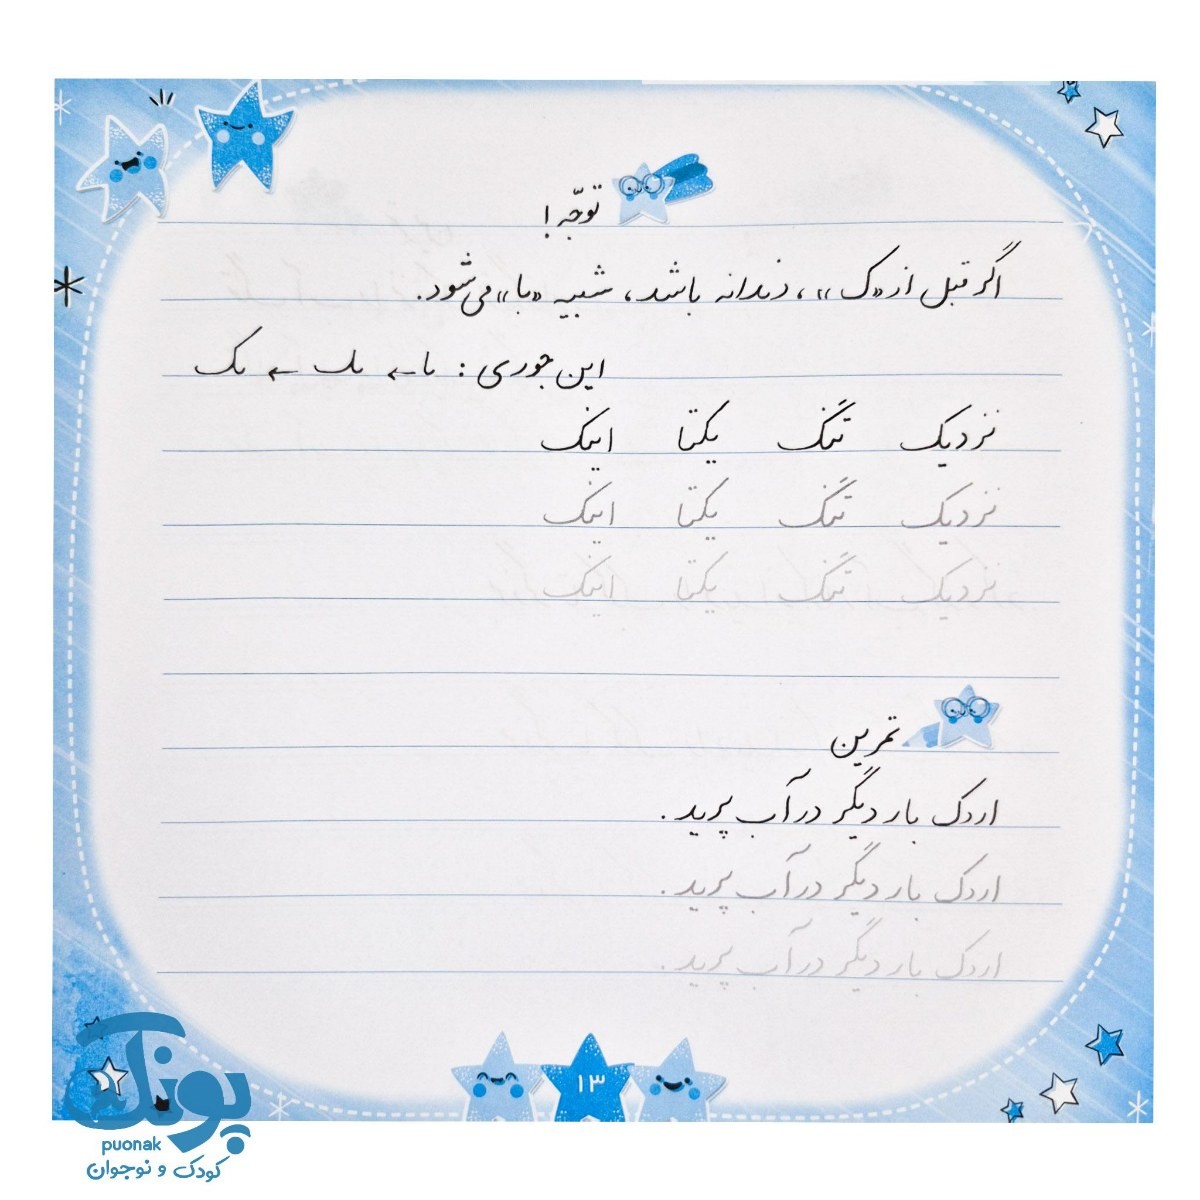 توجّه!
اگر قبل از «ک»، دندانه باشد، شبیه «با» می‌شود.
این جوری :
نزدیک تنگ یکتا اینک
نزدیک تنگ یکتا اینک
نزدیک تنگ یکتا اینک
تمرین
اردک بار دیگر در آب پرید.
اردک بار دیگر در آب پرید.
اردک بار دیگر در آب پرید.
۱۳
پونک
puonak
کودک و نوجوان